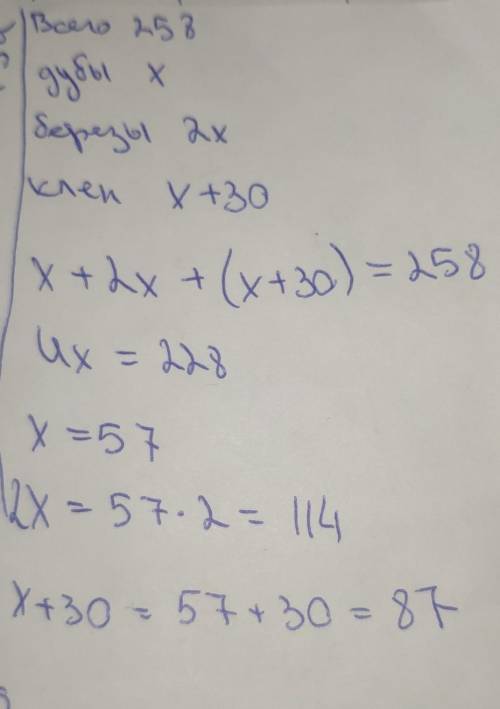 Всего 258
дубы x
березы 2x
клен x+30
x + 2x + (x+30) = 258
4x = 228
x = 57
2x = 57 · 2 = 114
x+30 = 57 + 30 = 87